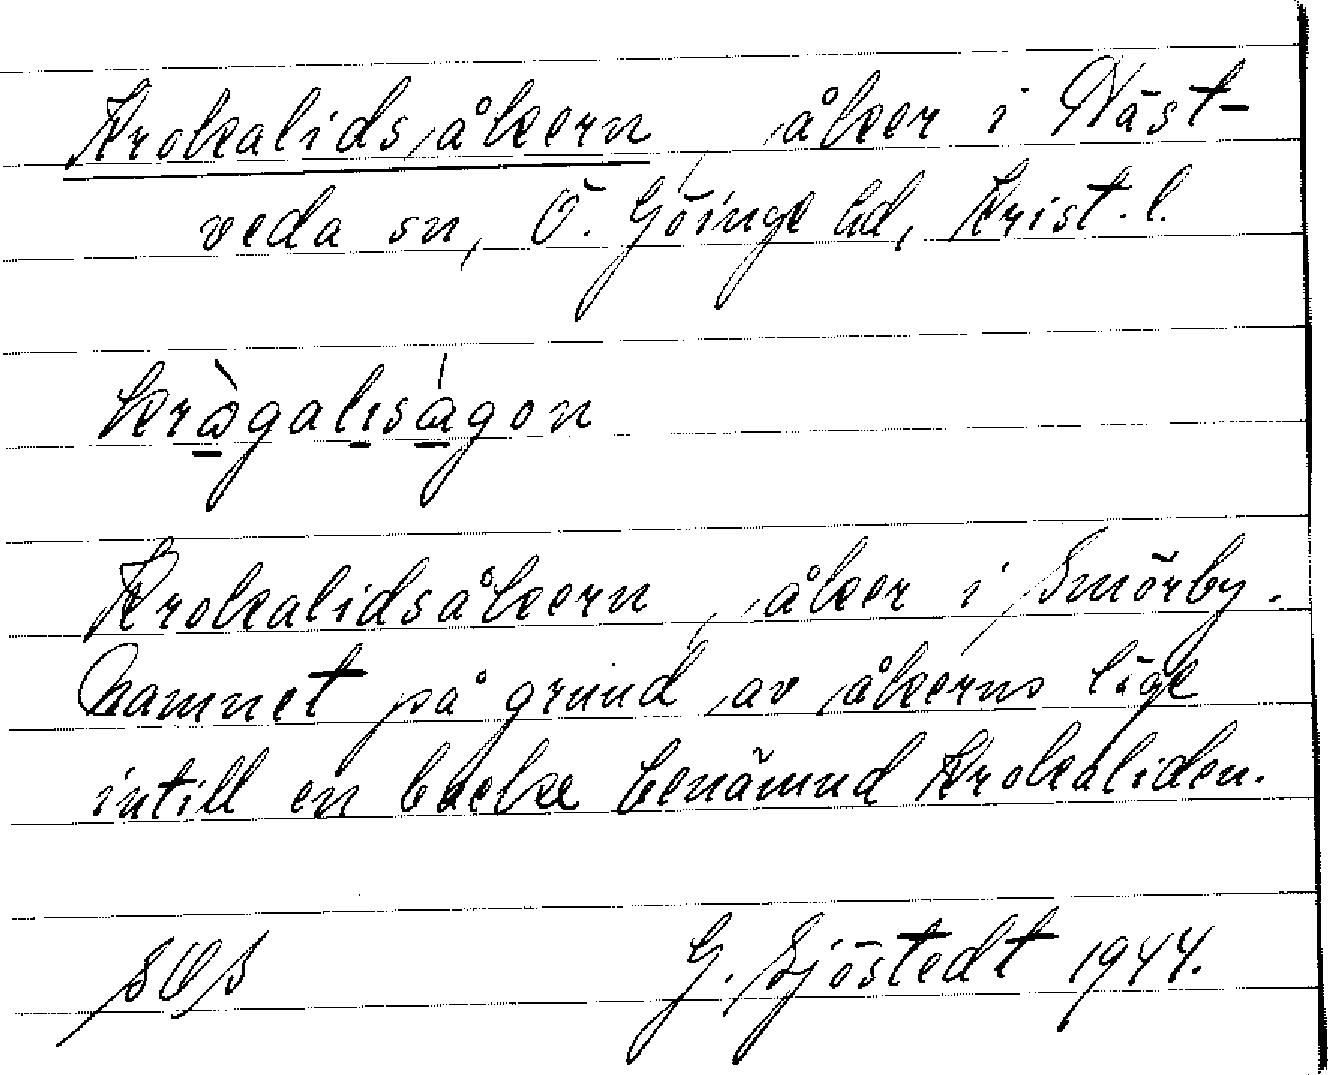 Krokalidsåkern, åker i Väst-
veda sn, Ö. Göinge hd, Krist. l.
kràgalisågon
Krokalidsåkern, åker i Smörby.
Namnet på grund av åkerns läge
intill en backe benämnd Krokaliden.
G. Sjöstedt 1944.